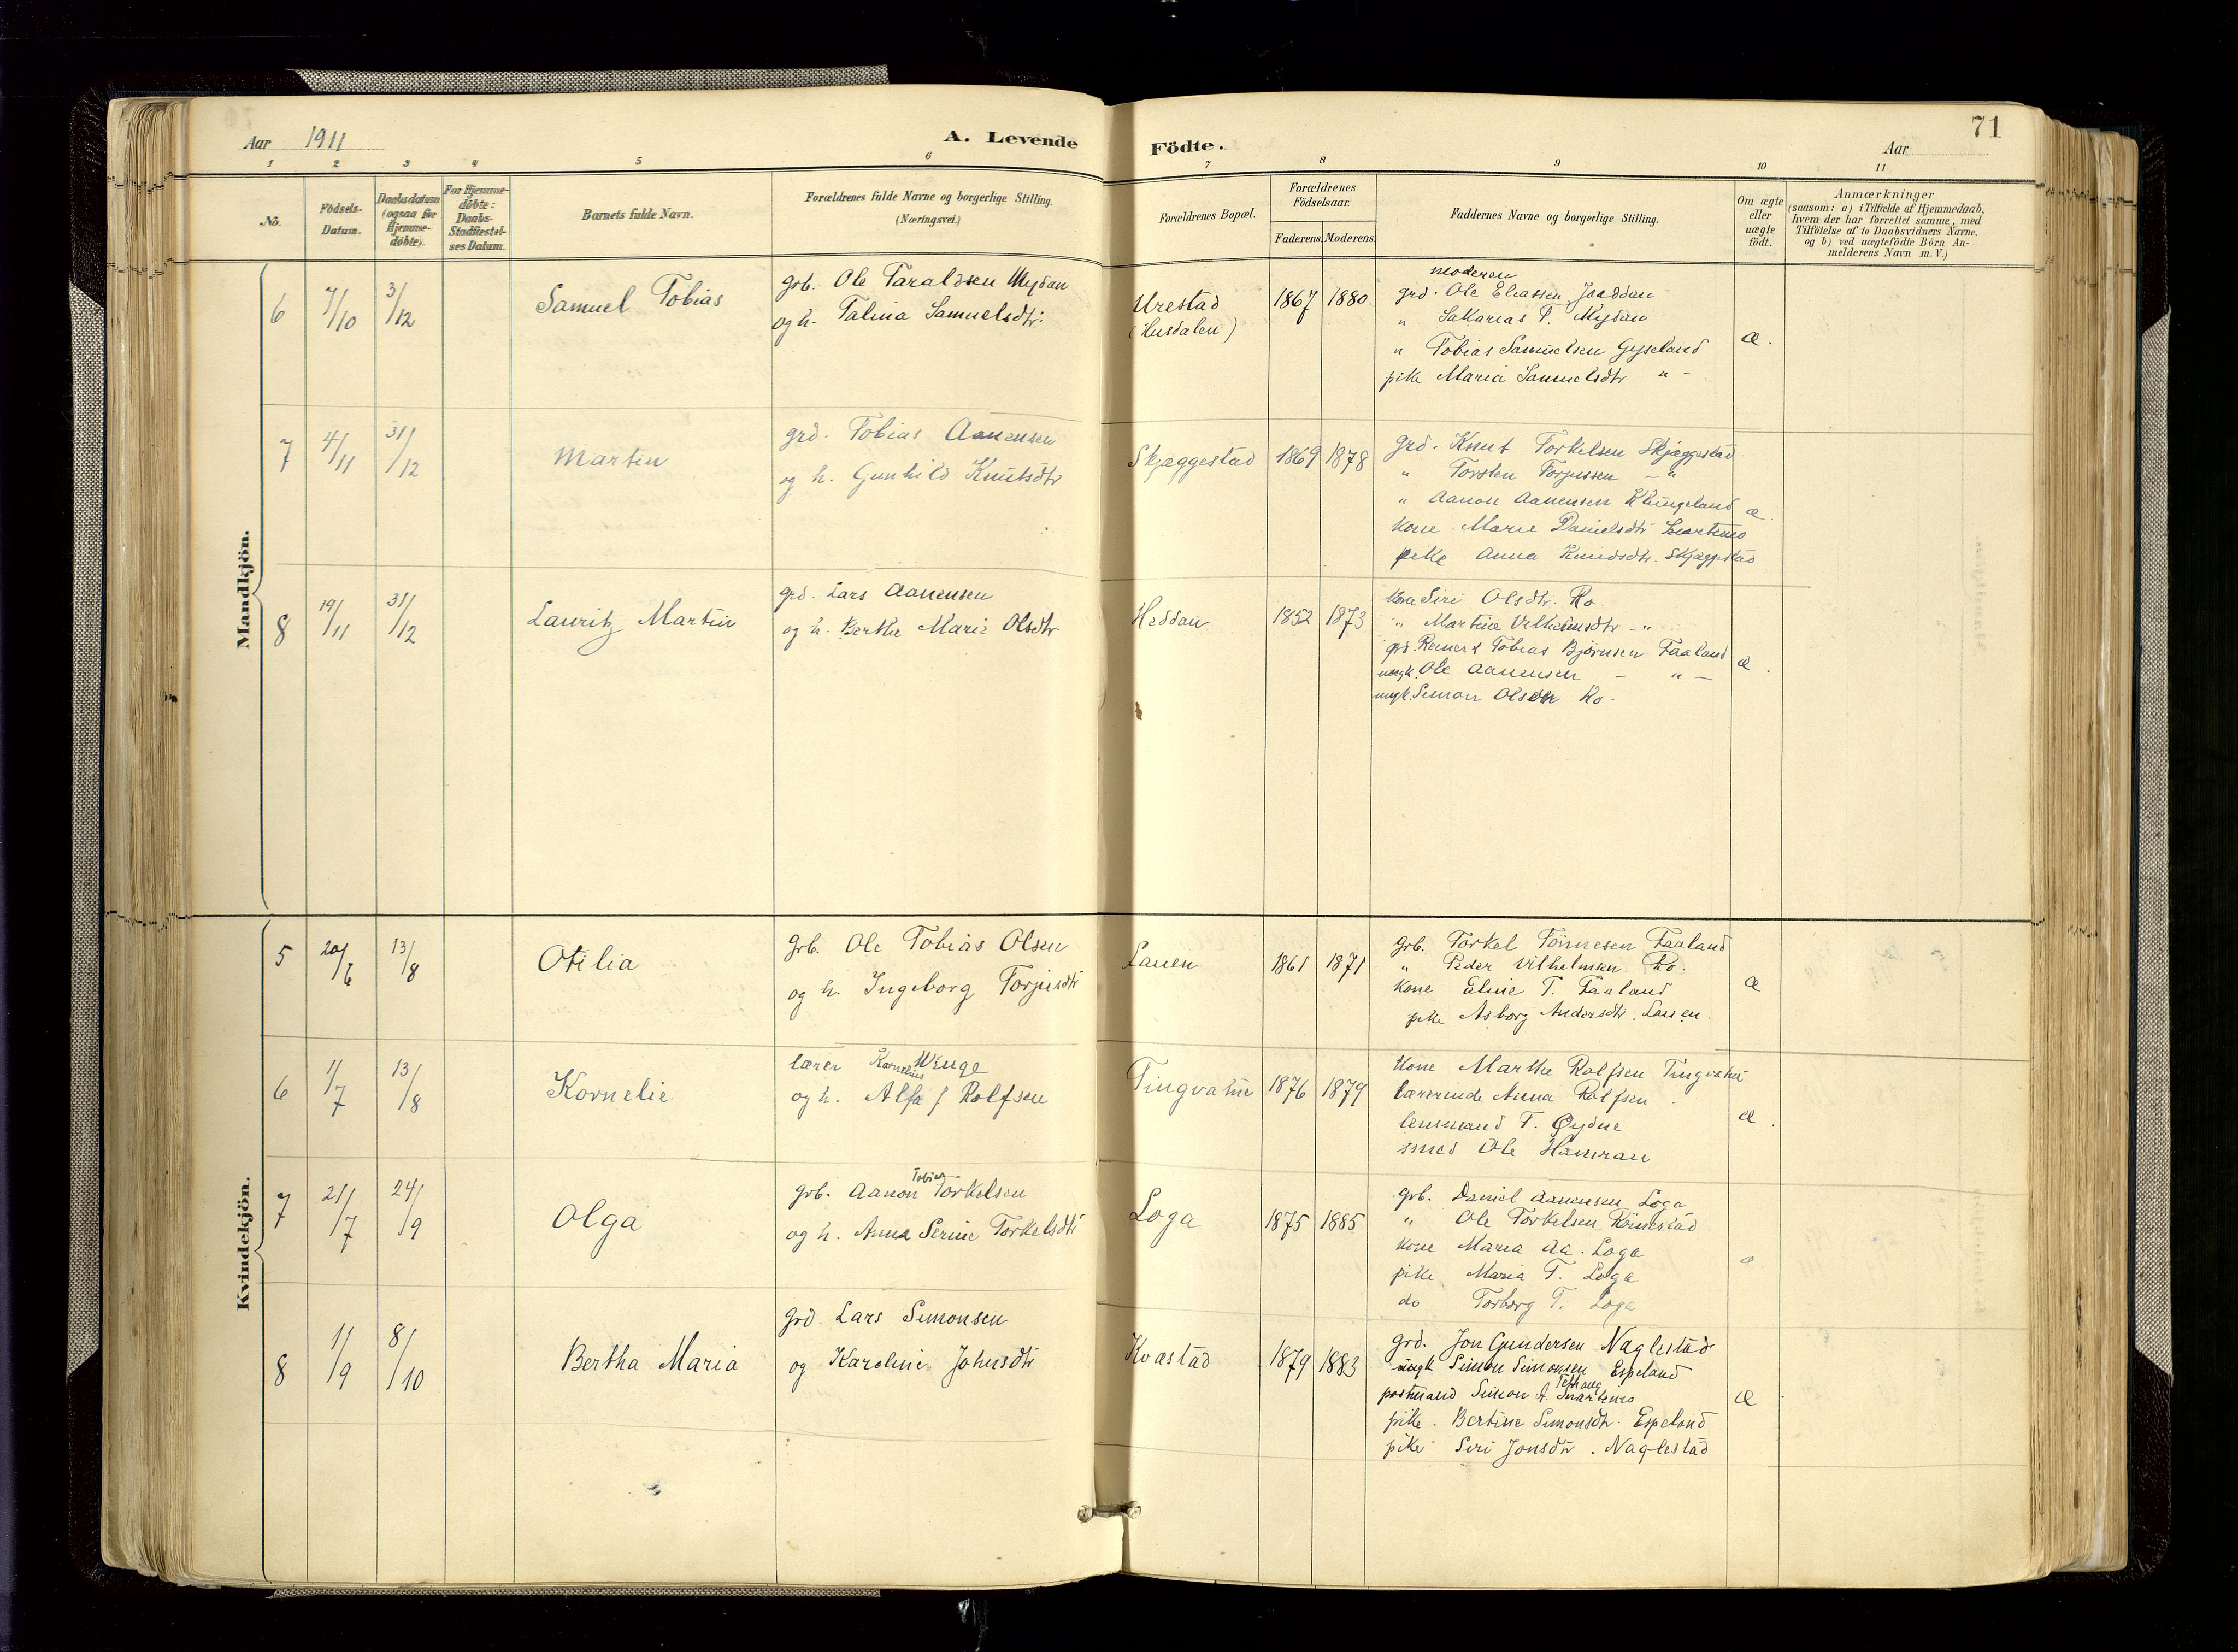 71
Aar 1911
A. Levende Födte.
Aar
1 2 3 4 5 6 7 8 9 10 11
No.
Födsels-
Datum.
Daabsdatum
(ogsaa for
Hjemme-
döbte).
For Hjemme-
döbte:
Daabs-
Stadfæstel-
ses Datum.
Barnets fulde Navn.
Forældrenes fulde Navne og borgerlige Stilling.
(Næringsvei.)
Forældrenes Bopæl.
Forældrenes
Födselsaar.
Faderens. Moderens.
Faddernes Navne og borgerlige Stilling.
Om ægte
eller
uægte
födt.
Anmærkninger
(saasom: a) i Tilfælde af Hjemmedaab,
hvem der har forrettet samme, med
Tilföielse af to Daabsvidners Navne.
og b) ved uægtefödte Börn An-
melderens Navn m. V.)
Mandkjön.
6 7/10 3/12 Samuel Tobias
grb. Ole Taraldsen Mydan
og h. Talina Samuelsdtr.
Urestad
(Husdalen)
1867 1880
moderen
grd. Ole Eliassen Jaaddan
" Sakarias T. Mydan
" Tobias Samuelsen Gyseland
pike Maria Samuelsdtr " -
æ.
7 4/11 31/12 Martin
grd. Tobias Aanensen
og h. Gunhild Knutsdtr
Skjæggestad 1869 1878
grd. Knut Torkelsen Skjæggestad
" Torsten Torjussen - "
" Aanon Aanensen Klungeland
kone Marie Danielsdtr Snartemo
pike Anna Knudsdtr. Skjæggestad
æ.
8 19/11 31/12 Lauritz Martin
grd. Lars Aanensen
og h. Berthe Marie Olsdtr
Heddan 1852 1873
kone Siri Olsdtr. Ro
" Martine Vilhelmsdtr - "
grd. Reinert Tobias Bjørnsen Faaland
ungk. Ole Aanensen - " -
ungk. Simon Olsen Ro.
æ.
Kvindekjön.
5 20/6 13/8 Otilia
grb. Ole Tobias Olsen
og h. Ingeborg Torjusdtr
Lauen 1861 1871
grb. Torkel Tönnesen Faaland
" Peder Vilhelmsen Ro.
kone Eline T. Faaland
pike Asborg Andersdtr. Lauen.
æ
6 1/7 13/8 Kornelie
lærer Kornelius Winge
og h. Alfa f Rolfsen
Tingvatne 1876 1879
kone Marthe Rolfsen Tingvatne
lærerinde Anna Rolfsen
lensmand T. Øydne
smed Ole Hamran
æ.
7 21/7 24/9 Olga
grb. Aanon Tobias Torkelsen
og h. Anna Serine Torkelsdtr
Loga 1875 1885
grb. Daniel Aanensen Loga
" Ole Torkelsen Rönestad
kone Maria Aa. Loga
pike Maria T. Loga
do Torborg T. Loga
æ
8 1/9 8/10 Bertha Maria
grd. Lars Simonsen
og Karoline Johnsdtr
Kvastad 1879 1883
grd. Jon Gundersen Naglestad
ungk Simon Simonsen Espeland
postmand Simon A. Snartemo
pike. Bertine Simonsdtr. Espeland
pike Siri Jonsdtr. Naglestad
æ